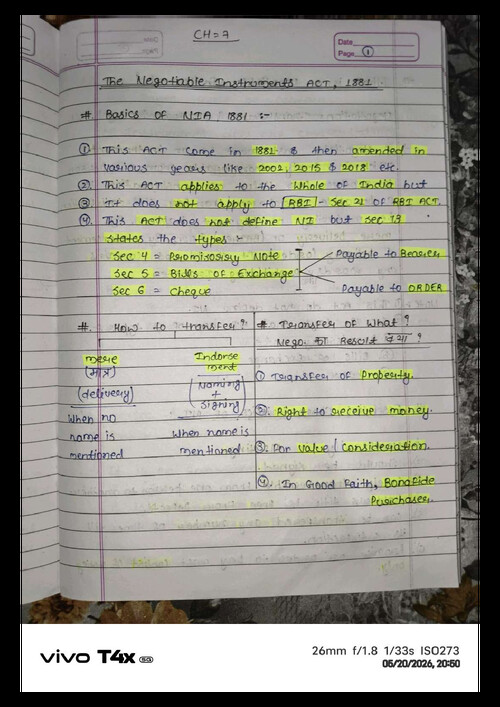 CH = 7
Date
Page 1
The Negotiable Instruments ACT, 1881
# Basics of NIA 1881 :-
① This ACT come in 1881 & then amended in
various years like 2002, 2015 & 2018 etc.
② This ACT applies to the whole of India but
③ it does not apply to [RBI]- Sec 21 of RBI ACT.
④ This ACT does not define NI but Sec 13
states the types :-
Sec 4 = Promissory Note
Payable to Bearer
Sec 5 = Bills of Exchange
Sec 6 = Cheque
Payable to ORDER
#. How to transfer?
mere
(मात्र)
(delivery)
When no
name is
mentioned
Indorse
ment
(Naming
+
Signing)
When name is
mentioned
# Transfer of What?
Nego. का Result क्या?
① Transfer of Property.
②. Right to receive money.
③. For Value / Consideration.
④. In Good Faith, Bonafide
Purchaser.
vivo T4x 5G
26mm f/1.8 1/33s ISO273
05/20/2026, 20:50